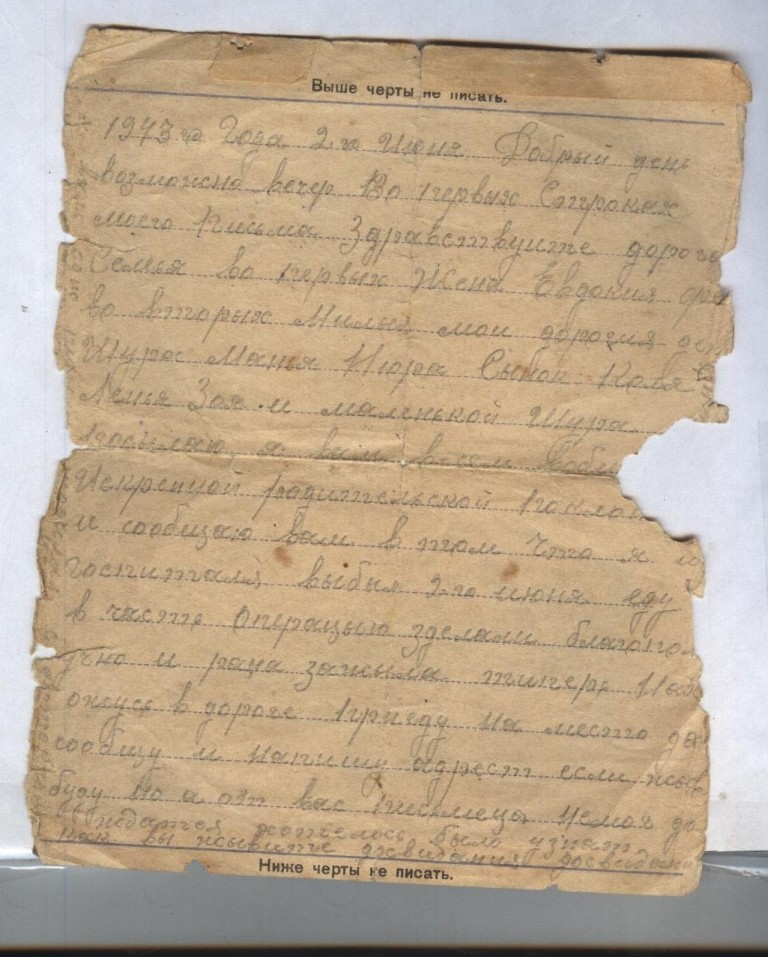 Выше черты не писать.
1943 го Года 2 го Июня Добрый день
возможно вечер Во первых Строках
моего Письма Здравствуите дорога
Семья во первых Жена Евдокия
во вторых Милыи мои дорогия
Шура Маня Нюра Сынок Коля
Леня Зоя и маленькой Шура
посылаю я вам всем
Искренной родительской поклон
и сообщаю вам в том что я
госпиталя выбыл 2 го июня еду
в часть Операцыю зделали благопол
учно и рана зажыла типерь
ожусь в дороге приеду на место
сообщу и напишу адрест если
буду Но а от вас писмеца немог до
ждатся хотелось было узнат
как вы жывите досвидания досвидан
Ниже черты не писать.